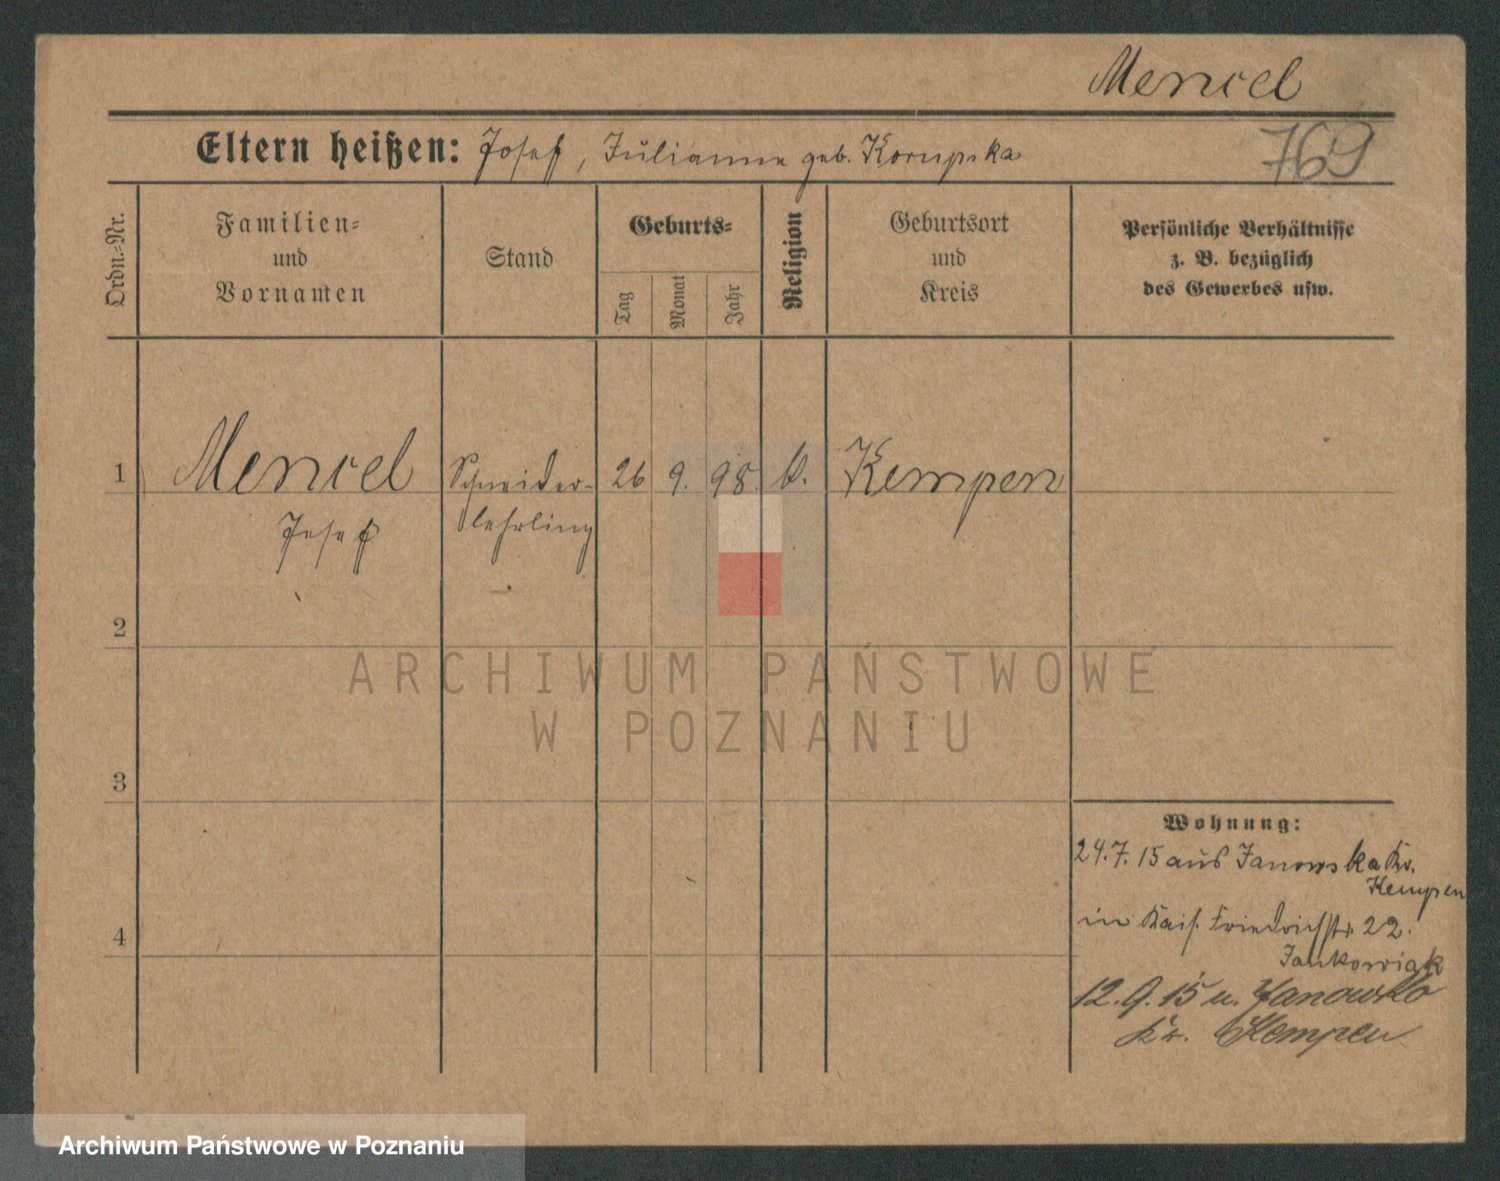 Mencel
Eltern heißen: Josef, Julianna geb. Korupska
769
Ordn.-Nr.
Familien-
und
Vornamen
Stand
Geburts-
Tag
Monat
Jahr
Religion
Geburtsort
und
Kreis
Persönliche Verhältnisse
z. B. bezüglich
des Gewerbes usw.
1 Mencel Schneider- 26 9. 98 k. Kempen
Josef lehrling
2
3
4
Wohnung:
24.7.15 aus Janowska Kr.
Kempen
in Kais. Friedrichstr. 22.
Jankowiak
12.9.15 n. Janowko
Kr. Kempen
ARCHIWUM PAŃSTWOWE
W POZNANIU
Archiwum Państwowe w Poznaniu